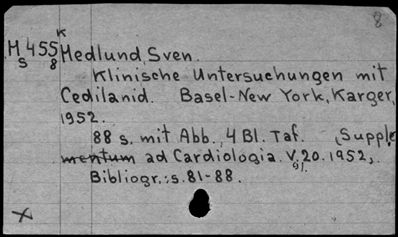 8
K
M 455 Hedlund, Sven.
S 8
Klinische Untersuchungen mit
Cedilanid. Basel-New York, Karger,
1952.
88 s. mit Abb., 4 Bl. Taf. (Supple
mentum ad Cardiologia. V. 20. 1952,
91.
Bibliogr.: s. 81-88.
X